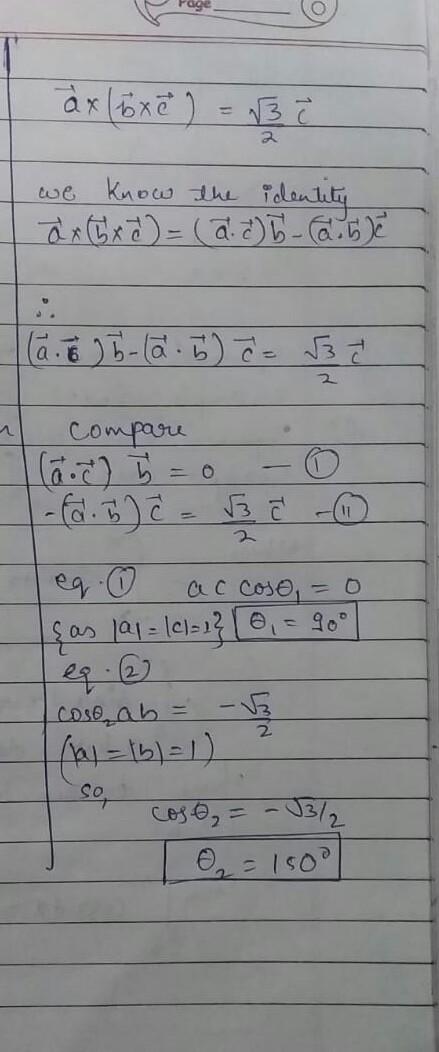 Page
a⃗×(b⃗×c⃗) = √3/2 c⃗
we know the identity
a⃗×(b⃗×c⃗) = (a⃗.c⃗)b⃗-(a⃗.b⃗)c⃗
∴
(a⃗.c⃗)b⃗-(a⃗.b⃗) c⃗ = √3/2 c⃗
compare
(a⃗.c⃗) b⃗ = 0 — ①
-(a⃗.b⃗) c⃗ = √3/2 c⃗ -⑪
eq.① a c cosθ₁ = 0
{as |a|=|c|=1} θ₁ = 90°
eq.②
cosθ₂ab = -√3/2
(|a|=|b|=1)
so,
cosθ₂ = -√3/2
θ₂ = 150°